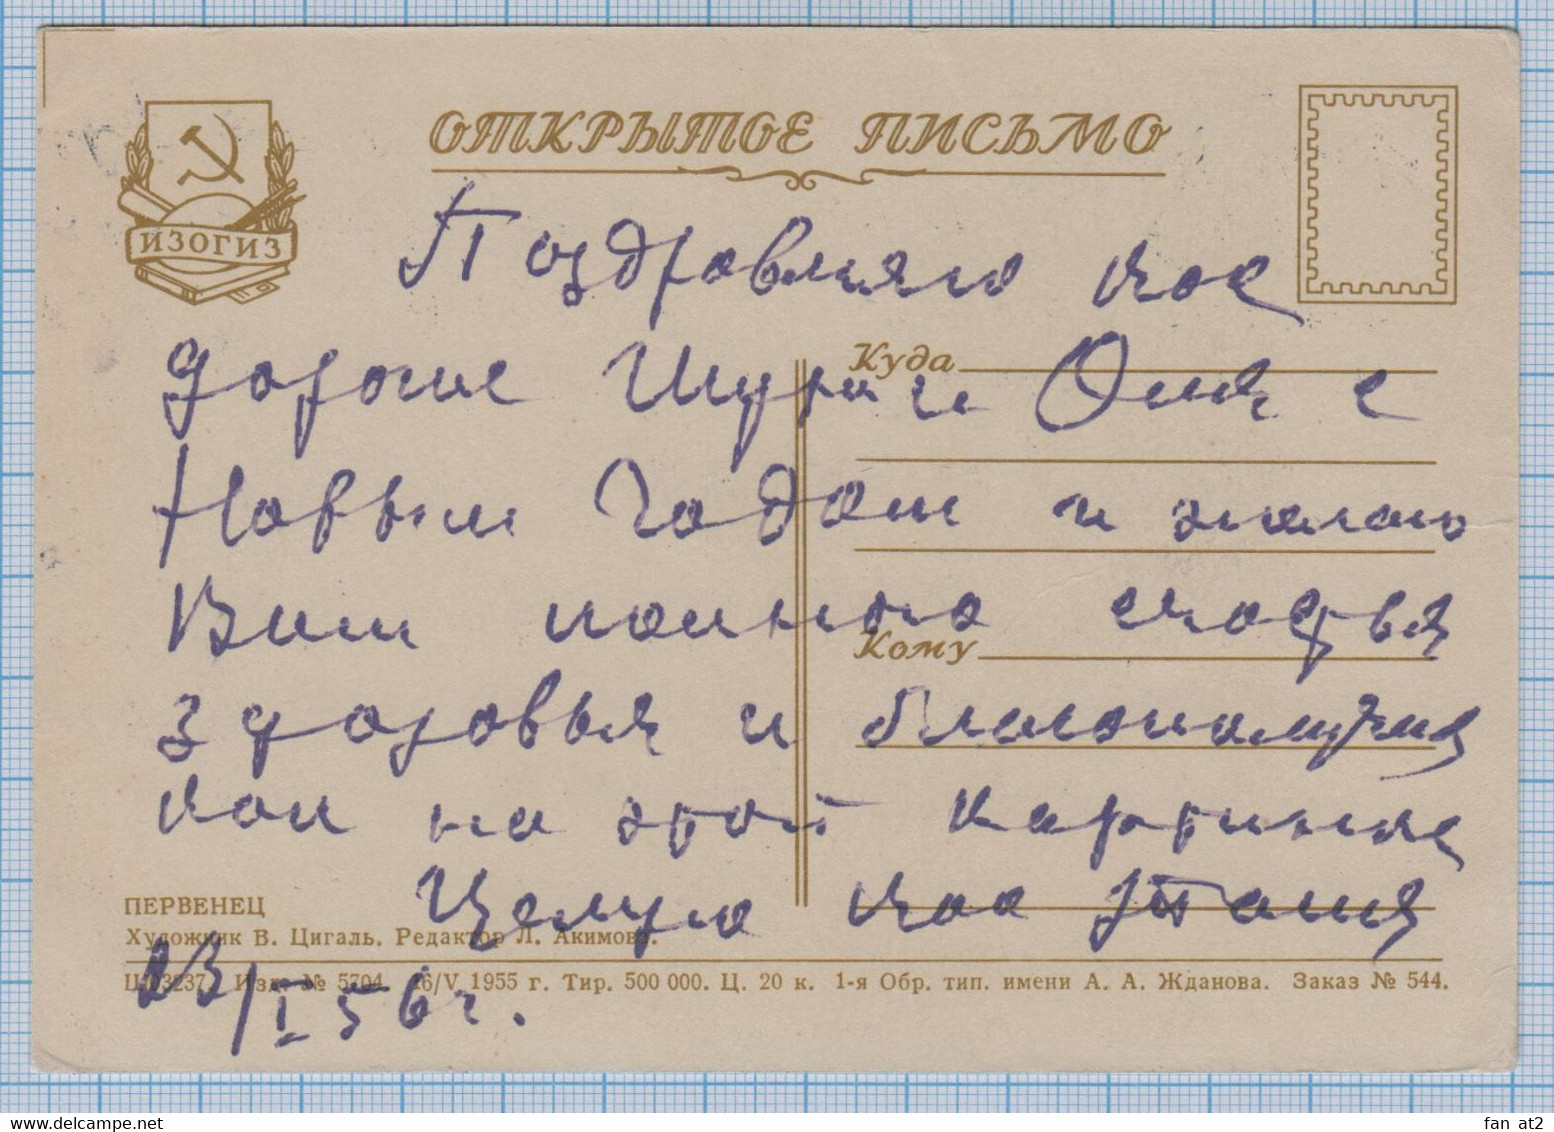 ОТКРЫТОЕ ПИСЬМО
ИЗОГИЗ
Поздравляю вас
дорогие Шура и Оля с
Новым Годом и желаю
Вам полного счастья
здоровья и благополучия
как на этой картинке
Целую вас Таня
23/I 56 г.
Куда
Кому
ПЕРВЕНЕЦ
Художник В. Цигаль. Редактор Л. Акимова.
Ш03237. Изд. № 5704. 16/V 1955 г. Тир. 500 000. Ц. 20 к. 1-я Обр. тип. имени А. А. Жданова. Заказ № 544.
fan_at2
www.delcampe.net